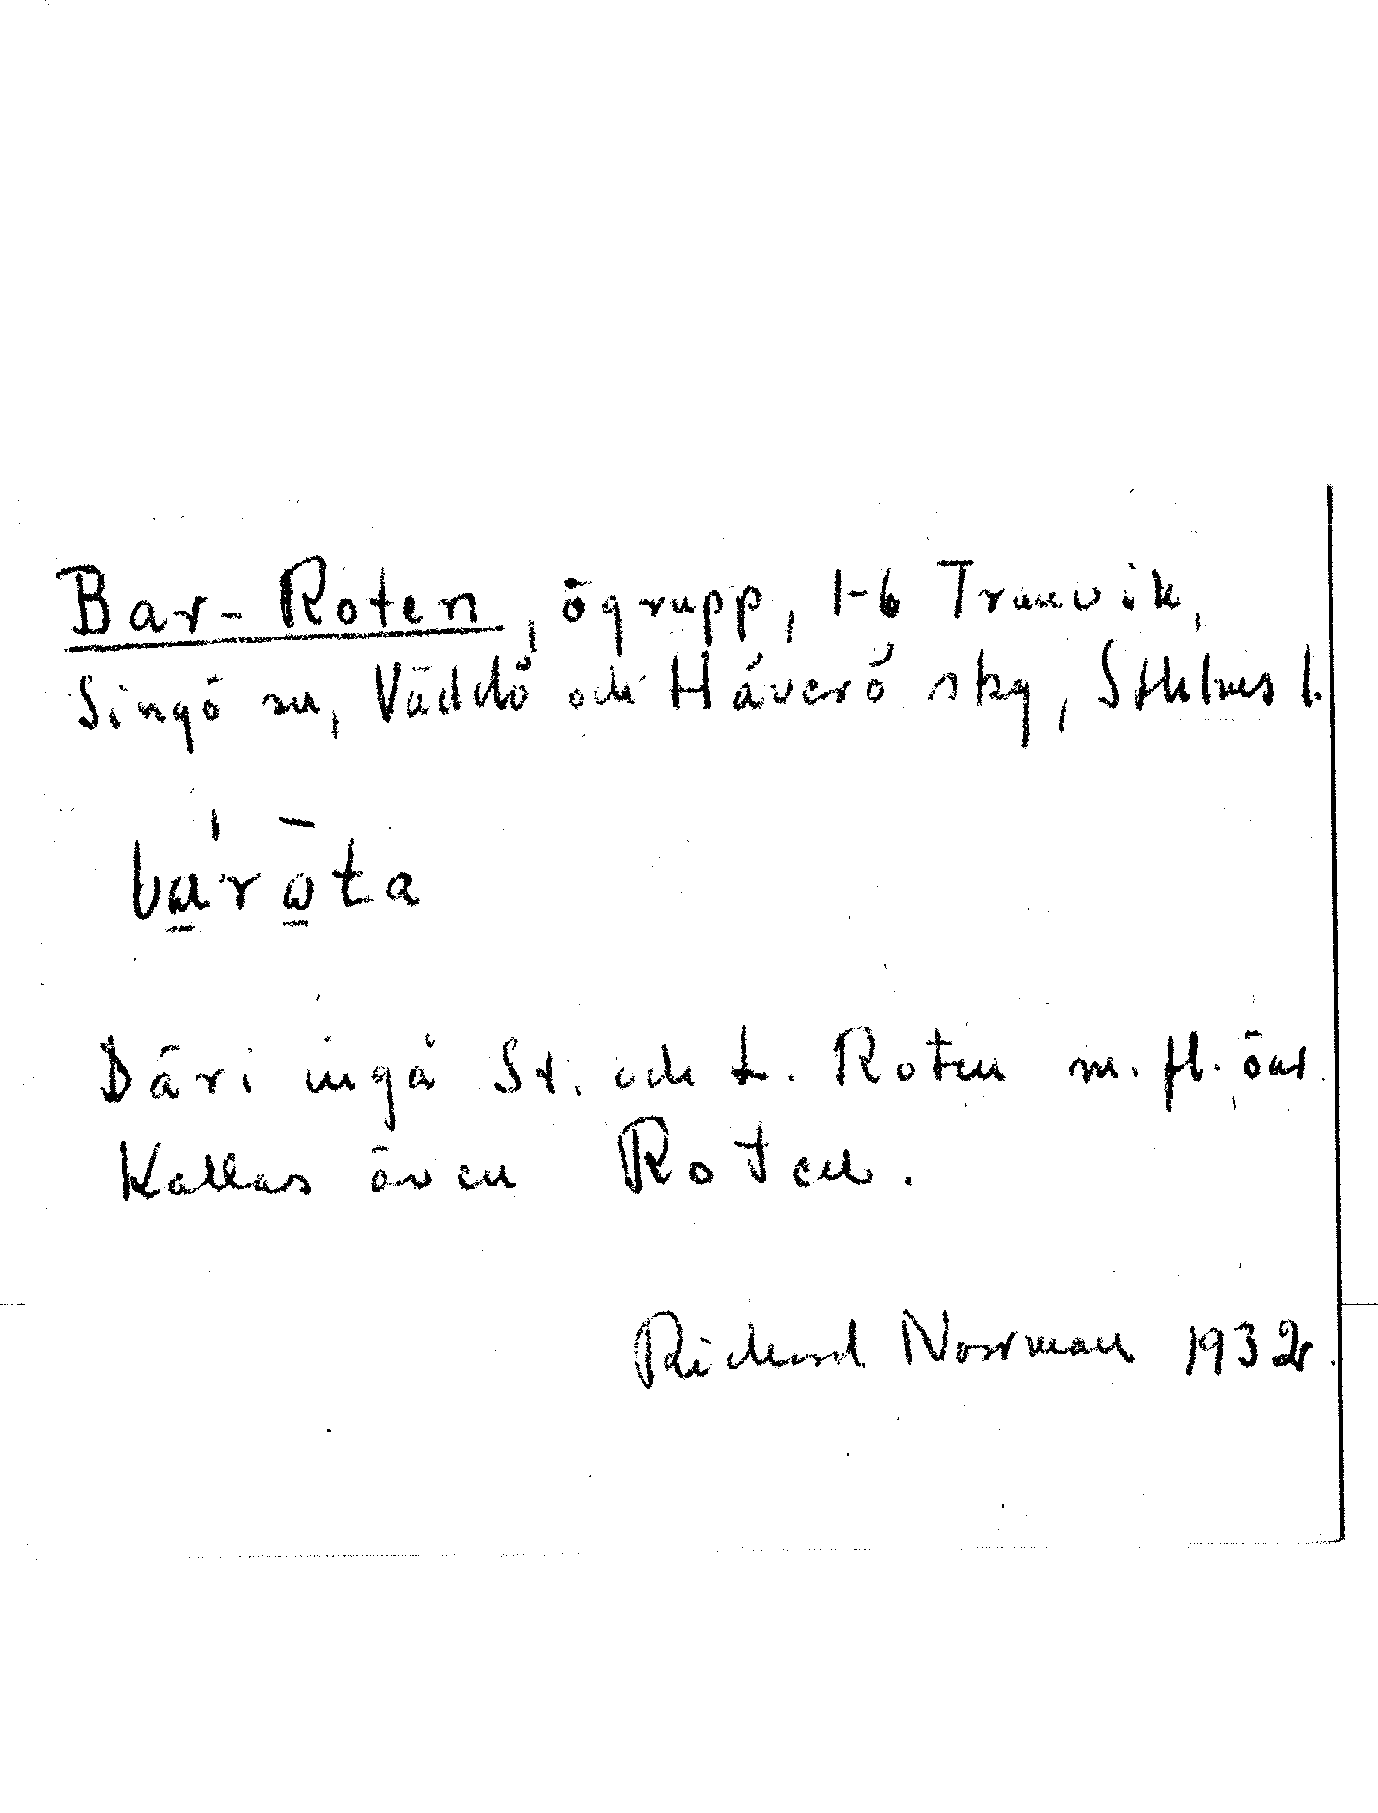 Bar-Roten, ögrupp, 1-6 Tranvik,
Singö sn, Väddö och Häverö skg, Sthlms l.
Däri ingå St. och L. Roten m. fl. öar.
Kallas även Roten.
Richard Norrman 1932.